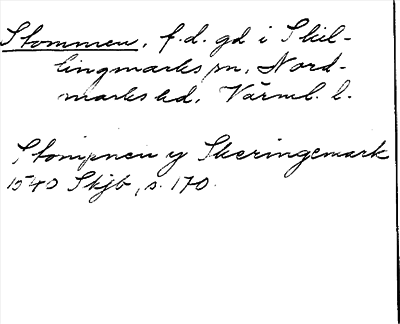 Stommen, f.d. gd i Skil-
lingmarks sn, Nord-
marks hd, Värml. l.
Stompnen y Skeringemark
1540 Skjb, s. 170.